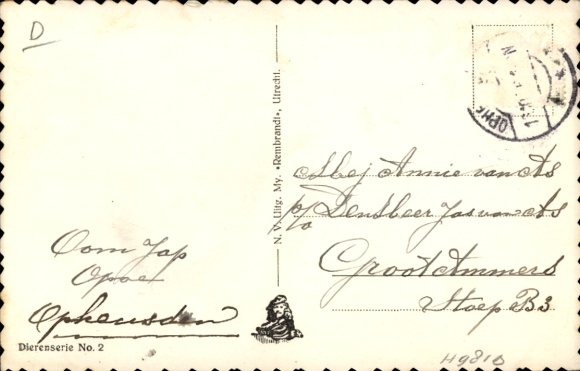 D
Oom Jap
Opoe
Opheusden
Dierenserie No. 2
N. V. Uitg. My. „Rembrandt", Utrecht.
OPHE
Mej Annie van As
p/a Den Heer Jas van As
Groot Ammers
Stoep B3
H9810